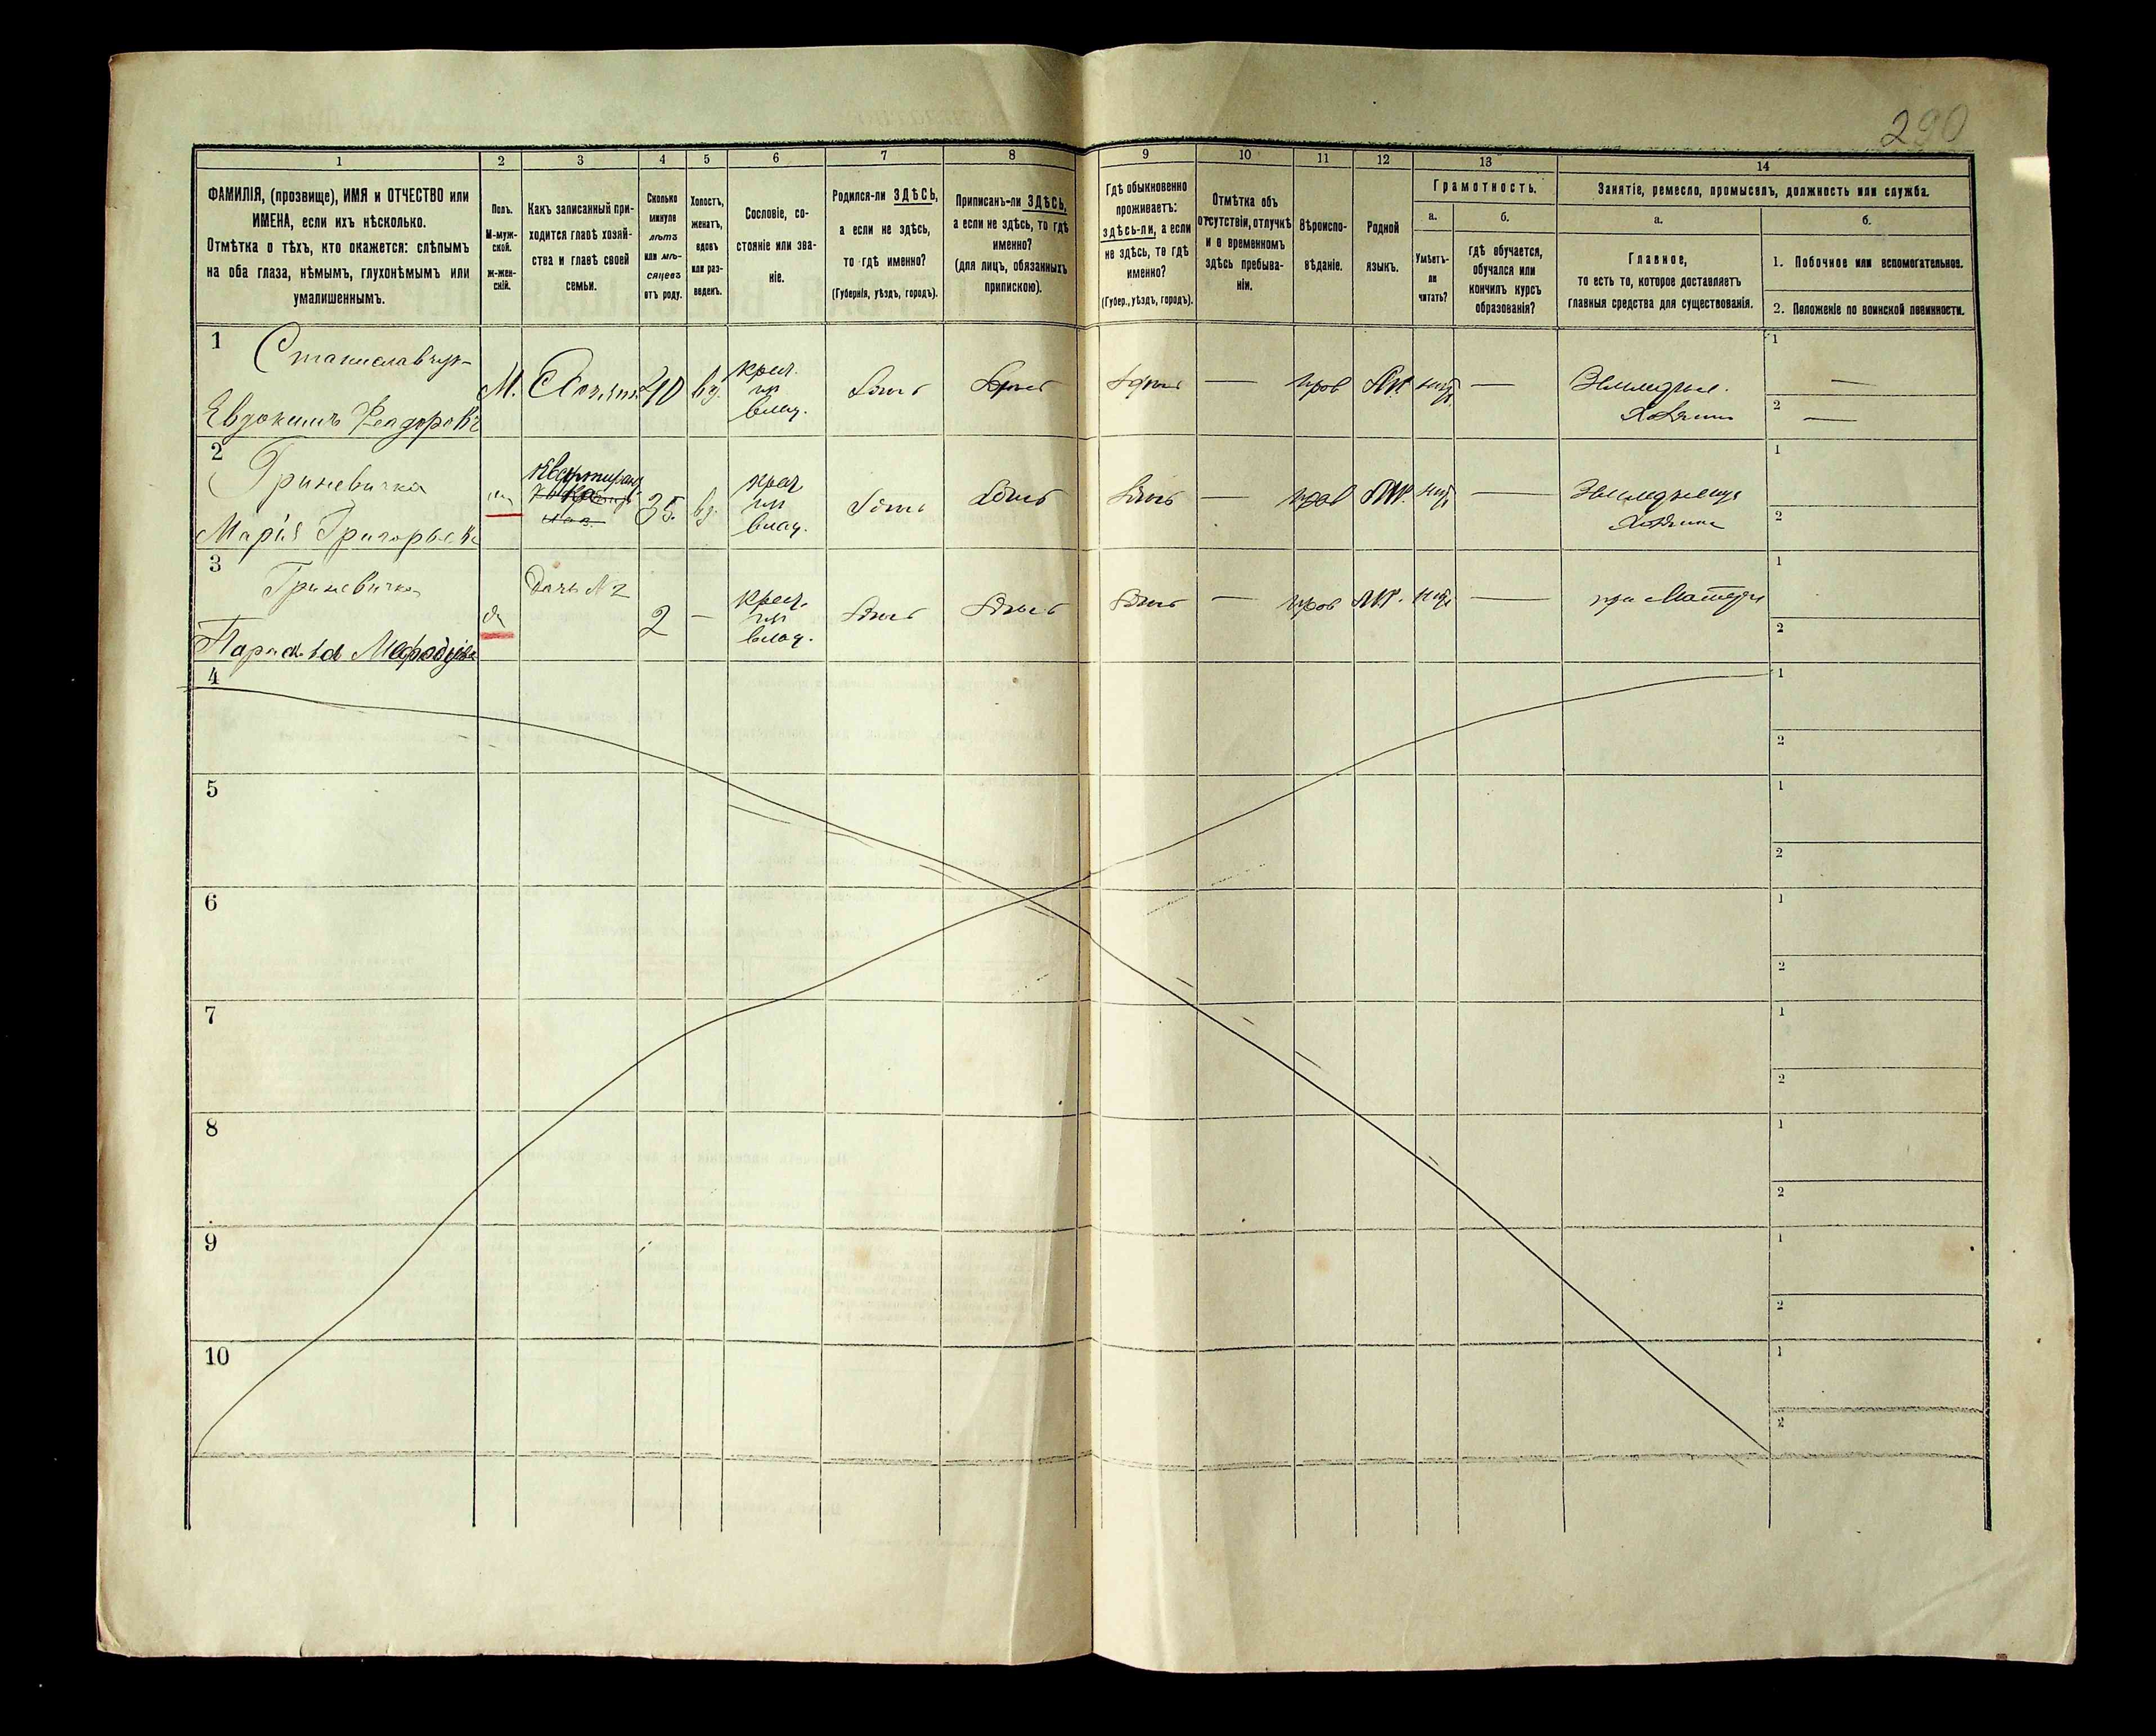 290
1 2 3 4 5 6 7 8 9 10 11 12 13 14
ФАМИЛІЯ, (прозвище), ИМЯ и ОТЧЕСТВО или
ИМЕНА, если ихъ нѣсколько.
Отмѣтка о тѣхъ, кто окажется: слѣпымъ
на оба глаза, нѣмымъ, глухонѣмымъ или
умалишеннымъ.
Полъ.
М-муж-
ской.
ж-жен-
скій.
Какъ записанный при-
ходится главѣ хозяй-
ства и главѣ своей
семьи.
Сколько
минуло
лѣтъ
или мѣ-
сяцевъ
отъ роду.
Холостъ,
женатъ,
вдовъ
или раз-
веденъ.
Сословіе, со-
стояніе или зва-
ніе.
Родился-ли ЗДѢСЬ,
а если не здѣсь,
то гдѣ именно?
(Губернія, уѣздъ, городъ).
Приписанъ-ли ЗДѢСЬ,
а если не здѣсь, то гдѣ
именно?
(для лицъ, обязанныхъ
припискою).
Гдѣ обыкновенно
проживаетъ:
здѣсь-ли, а если
не здѣсь, то гдѣ
именно?
(Губер., уѣздъ, городъ).
Отмѣтка объ
отсутствіи, отлучкѣ
и о временномъ
здѣсь пребыва-
ніи.
Вѣроиспо-
вѣданіе.
Родной
языкъ.
Грамотность.
а.
Умѣетъ-
ли
читать?
б.
гдѣ обучается,
обучался или
кончилъ курсъ
образованія?
Занятіе, ремесло, промыселъ, должность или служба.
а.
Главное,
то есть то, которое доставляетъ
главныя средства для существованія.
б.
1. Побочное или вспомогательное.
2. Положеніе по воинской повинности.
1
Станиславчук
Евдокимъ Феодоровъ
М. Хозяинъ 40 вд. крест. из влад. Здѣсь Здѣсь Здѣсь — прав нѣтъ —
Земледѣлъ.
Хозяинъ
1 —
2 —
2
Гриневичка
Марія Григорьева
Квартирант
35 вд. крест из влад. Здѣсь Здѣсь Здѣсь — прав нѣтъ —
Хозяинъ
1
2
3
Гриневичка
Дочь № 2
2 — крест. из влад. Здѣсь Здѣсь Здѣсь — прав нѣтъ — при Матери
1
2
4
1
2
5
1
2
6
1
2
7
1
2
8
1
2
9
1
2
10
1
2